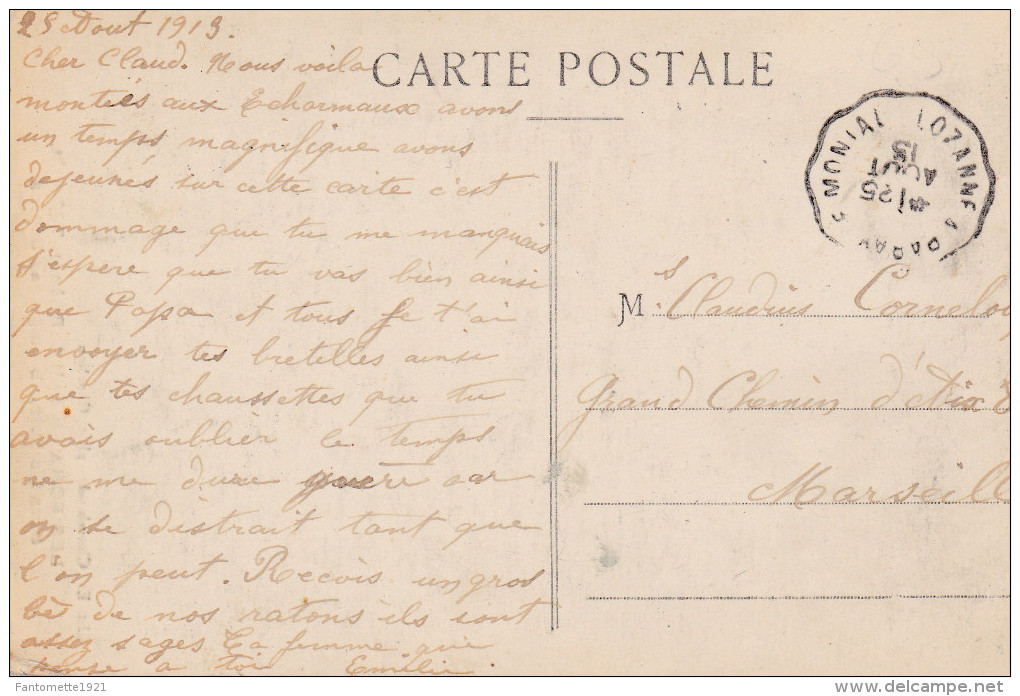 25 Aout 1913.
Cher Claud. Nous voila
montiés aux Echarmaux avons
un temps magnifique avons
dejeunés sur cette carte c'est
dommage que tu me manquais
J'espere que tu vas bien ainsi
que Papa et tous Je t'ai
envoyer tes bretelles ainsi
que tes chaussettes que tu
avais oublier le temps
ne me dure guere car
on se distrait tant que
l'on peut. Recois un gros
bè de nos ratons ils sont
assez sages Ta femme que
pense a toi Emilie
CARTE POSTALE
MONIAL LOZANNE A PARAY
25
AOUT
13
M.s Claudius Corneloup
Grand Chemin d'Aix
Marseill
Fantomette1921
delcampe.net